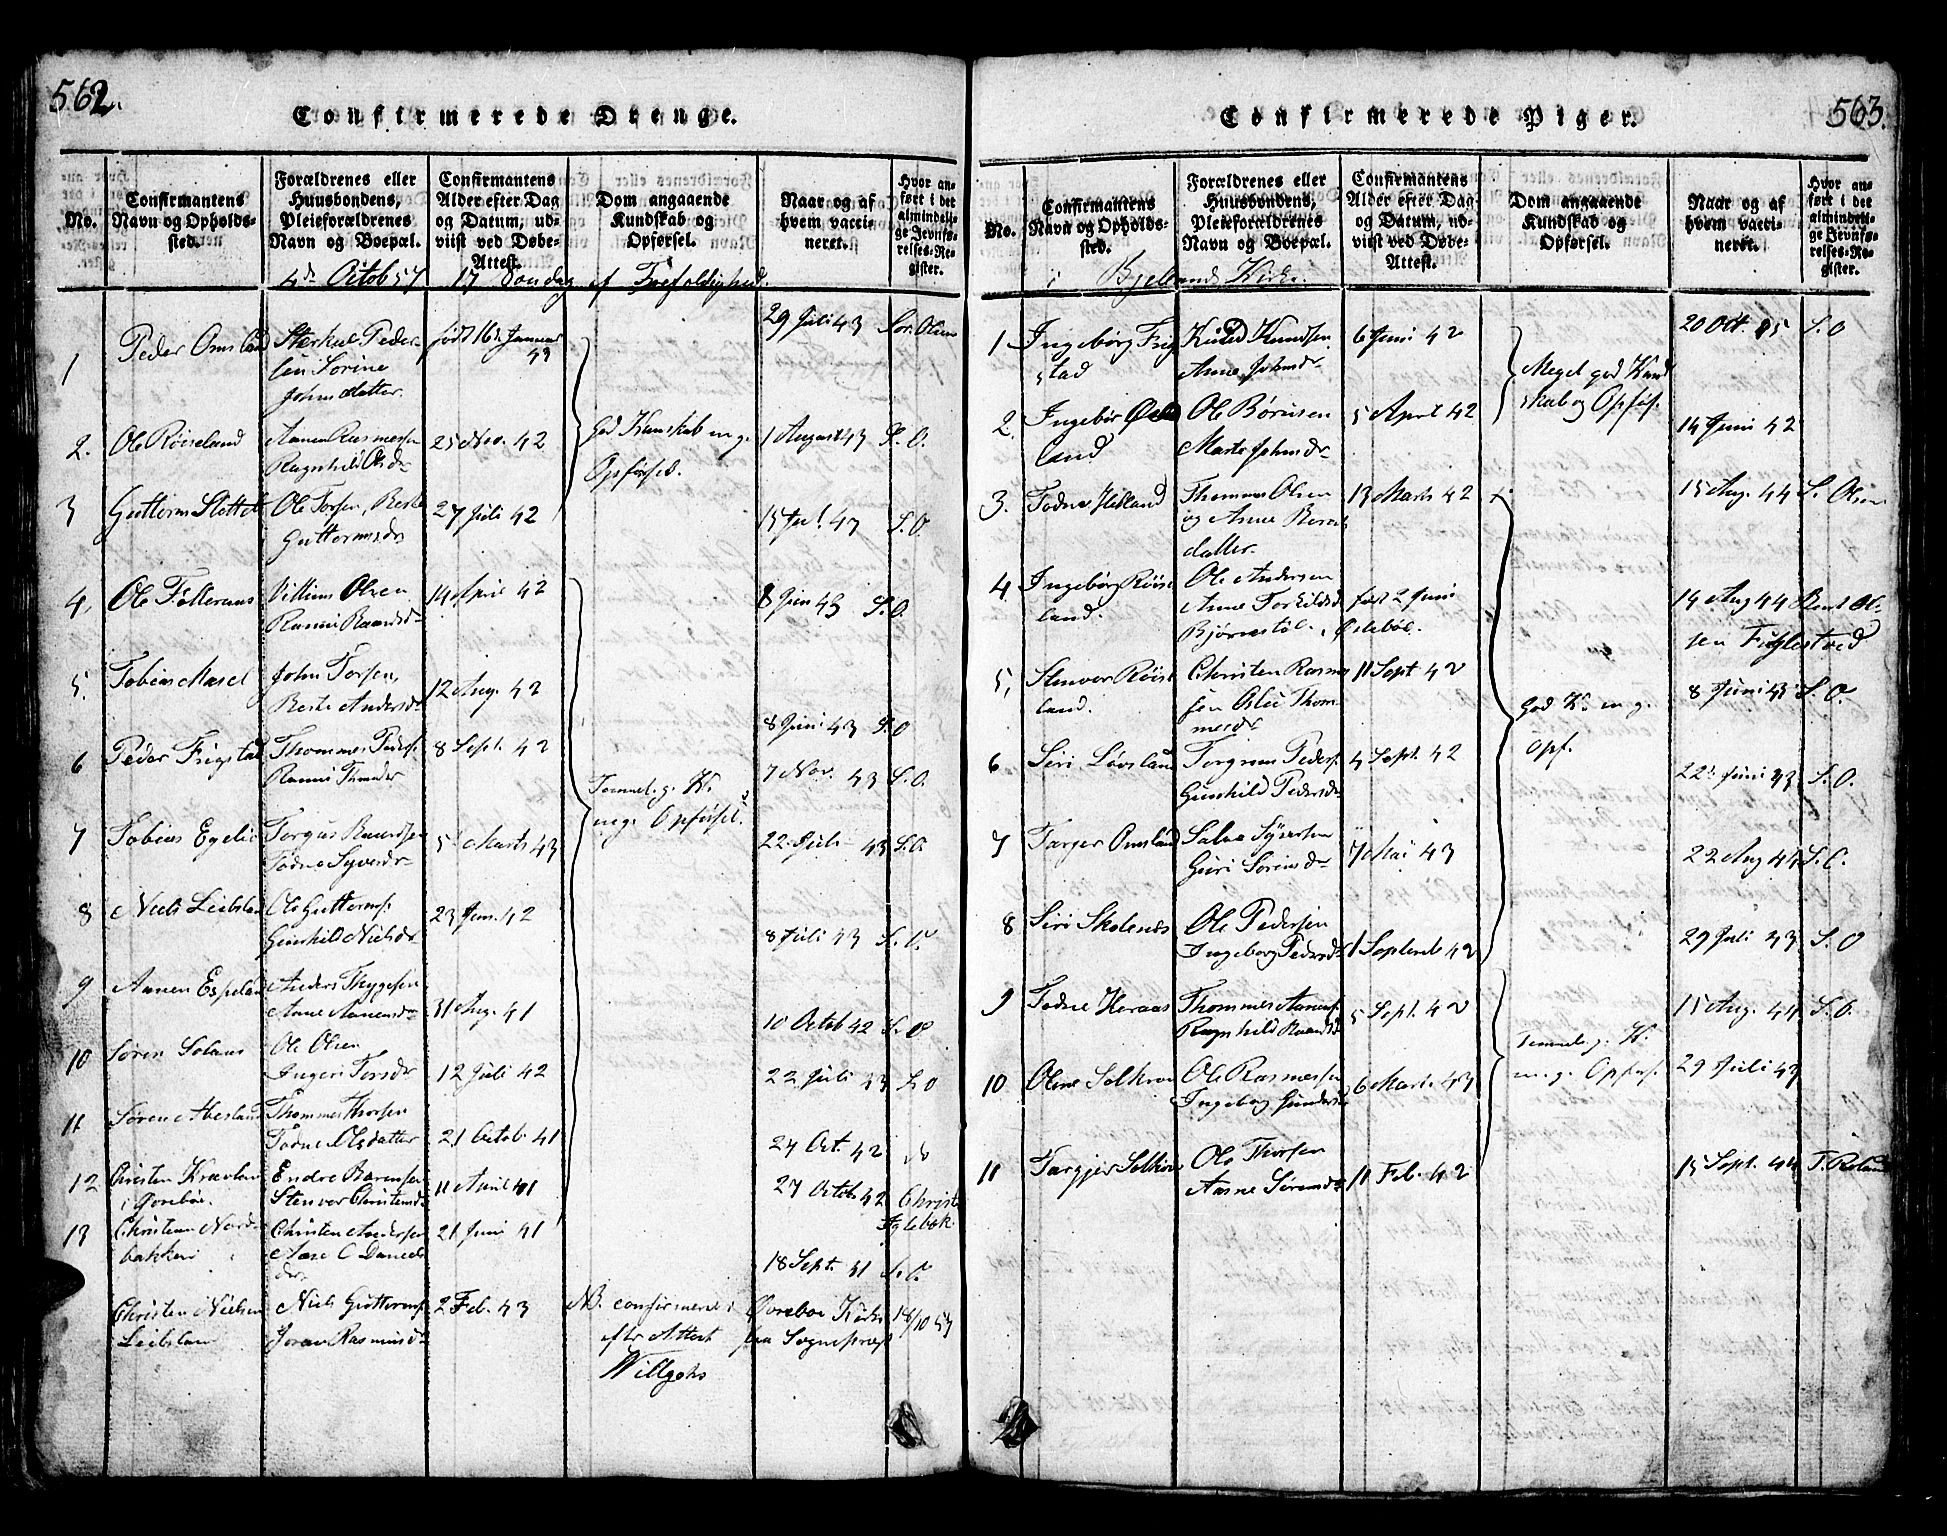 562.
Confirmerede Drenge.
No.
Confirmantens Navn og Opholds-sted.
Forældrenes eller Huusbondens, Pleieforældrenes Navn og Boepæl.
Confirmantens Alder efter Dag og Datum, ud-viist ved Døbe-Attest.
Dom angaaende Kundskab og Opførsel.
Naar og af hvem vacci-neret.
Hvor an-ført i det almindeli-ge Jevnfø-relses-Re-gister.
4de Octob 57 17 Søndag ef Trefoldighed.
1 Peder Omsland
Sterkul Peder-
sen Sørine
Johnsdatter.
født 16de Januar
43
29 Juli 43 Sør. Olsen
2. Ole Røiseland
Aanen Rasmussen
Ragnhild Olsdr
25 Nov. 42
God Kunskab m. g.
Opførsel.
1 August 43 S. O.
3 Guttorm Slottet
Ole Torsen, Berte
Guttormsdr
27 Juli 42
15 Jul. 43 S. O.
4. Ole
Villum Olsen
14 April 42
8 Juni 43 S. O.
5. Tobias
John Torsen,
Berte Andersdr
12 Aug. 42
8 Juni 43 S. O
6 Peder Frigstad
Thommes Peders.
8 Sept. 42
Temmel. g. K.
m. g. Opførsel.
7 Nov. 43 S. O.
7 Tobias Egeli
Torgus
Todne Syversdr
5 Marts 43
22 Juli 43 S. O.
8 Niels Leibsland
Ole Guttorms.
Gunhild Nielsdr
23 Jun. 42
8 Juli 43 S. O.
9 Aanen Espeland
Anders Thygesen
Anne Aanensdr
31 Aug. 41
10 Octob 42 S. O
10 Søren Solaas
Ole Olsen
Ingeri Torsdr
12 Juli 42
22 Juli 43 S. O
11 Søren Abesland
Thommes Thorsen
Todne Olsdatter
21 Octob. 41
24 Oct. 42 do
12 Christen
Endre
Stenver Christensd.
11 April 41
27 Octob 42 Christ.
13 Christen Nord-
bakken
Christen Andersen
Aase C Daniels
dr.
21 Juni 41
18 Sept. 41 S. O.
Christen Nielsen
Leibsland
Niels Guttorms.
Joran Rasmusdr
2 Feb. 43
NB. confirmeret i Øvrebøe Kirke 18/10 57
eftr Attest fra Sognepræst
Willgohs
563.
Confirmerede Piger.
No.
Confirmantens Navn og Opholds-sted.
Forældrenes eller Huusbondens, Pleieforældrenes Navn og Boepæl.
Confirmantens Alder efter Dag og Datum, ud-viist ved Døbe-Attest.
Dom angaaende Kundskab og Opførsel.
Naar og af hvem vacci-neret.
Hvor an-ført i det almindeli-ge Jevnfø-relses-Re-gister.
i Bjellands Kirke.
1 Ingebørg Frig
stad
Knud Knudsen
Anne Johnsdr
6 Juni 42
Meget god Kund
skab og Opførs.
20 Oct. S. O
2. Ingebør
land
Ole Børusen
Marte Johnsdr
5 April 42
14 Juni 42
3. Todne Heiland
Thommes Olsen
og Anne
datter.
13 Marts 42
15 Aug. 44 S. Olsen
4 Ingebørg Røise
land.
Ole Andersen
Anne Torkildsd.
Bjørnestøl.
født 2 Juni
14 Aug 44 Bent Ol-
sen Fuglestved
5. Stenver Røise
land.
Christen Rasmus
sen Aslu Thom
mesdr
11 Sept 42
God K. m. g.
Opf.
8 Juni 43 S. O.
6 Siri Løvsland
Torgrim Peders.
Gunhild Pedersdr
4 Sept. 42
22 Juni 43 S. O.
7 Targer Omsland
Salve Syversen
Guri Sørensdr
7 Mai 43
22 Aug 44 S. O.
8 Siri Skolenes
Ole Pedersen
Ingeborg Pedersdr
1 Septemb 42
29 Juli 43 S. O
9 Todne Heraas
Thommes Aanens.
Ragnhild
5 Sept. 42
Temmelig. K.
m. g. Opførs.
15 Aug. 44 S. O.
10 Oline
Ole Rasmussen
Ingeborg Gundersd
6 Marts 43
29 Juli 43
11 Targjer
Ole Thorsen
Aasne Sørensdr
11 Feb. 42
15 Sept. 44